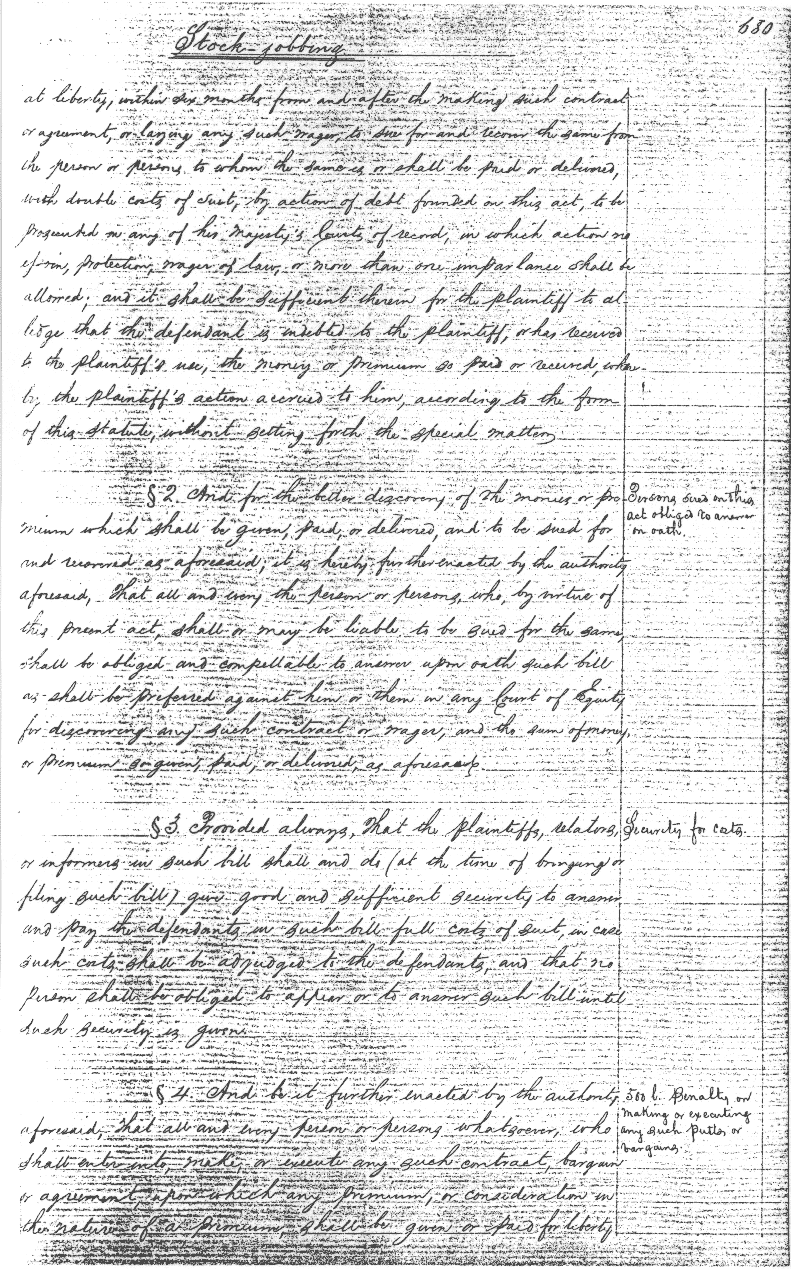 630
Stock-jobbing
at liberty, within six months from and after the making such contract
or agreement, or laying any such wager, to sue for and recover the same from
the person or persons to whom the same is or shall be paid or delivered,
with double costs of suit, by action of debt founded on this act, to be
prosecuted in any of his Majesty's Courts of record, in which action no
essoin, protection, wager of law, or more than one imparlance shall be
allowed; and it shall be sufficient therein for the plaintiff to al
ledge that the defendant is indebted to the plaintiff, or has received
to the plaintiff's use, the money or premium so paid or received, where-
by the plaintiff's action accrued to him, according to the form
of this statute, without setting forth the special matter.
§ 2. And for the better discovery of the monies or pre-
mium which shall be given, paid, or delivered, and to be sued for
and recovered as aforesaid; it is hereby further enacted by the authority
aforesaid, That all and every the person or persons, who, by virtue of
this present act, shall or may be liable to be sued for the same,
shall be obliged and compellable to answer upon oath such bill
as shall be preferred against him or them in any Court of Equity
for discovering any such contract or wager, and the sum of money,
or premium so given, paid, or delivered, as aforesaid.
Persons sued on this
act obliged to answer
on oath.
§ 3. Provided always, That the plaintiffs, relators,
or informers in such bill shall and do (at the time of bringing or
filing such bill) give good and sufficient security to answer
and pay the defendants in such bill full costs of suit, in case
such costs shall be adjudged to the defendants, and that no
person shall be obliged to appear or to answer such bill until
such security is given.
Security for costs.
§ 4. And be it further enacted by the authority
aforesaid, That all and every person or persons whatsoever, who
shall enter into, make, or execute any such contract, bargain
or agreement, upon which any premium, or consideration in
the nature of a premium, shall be given or paid for liberty
500 l. Penalty on
making or executing
any such putts or
bargains.